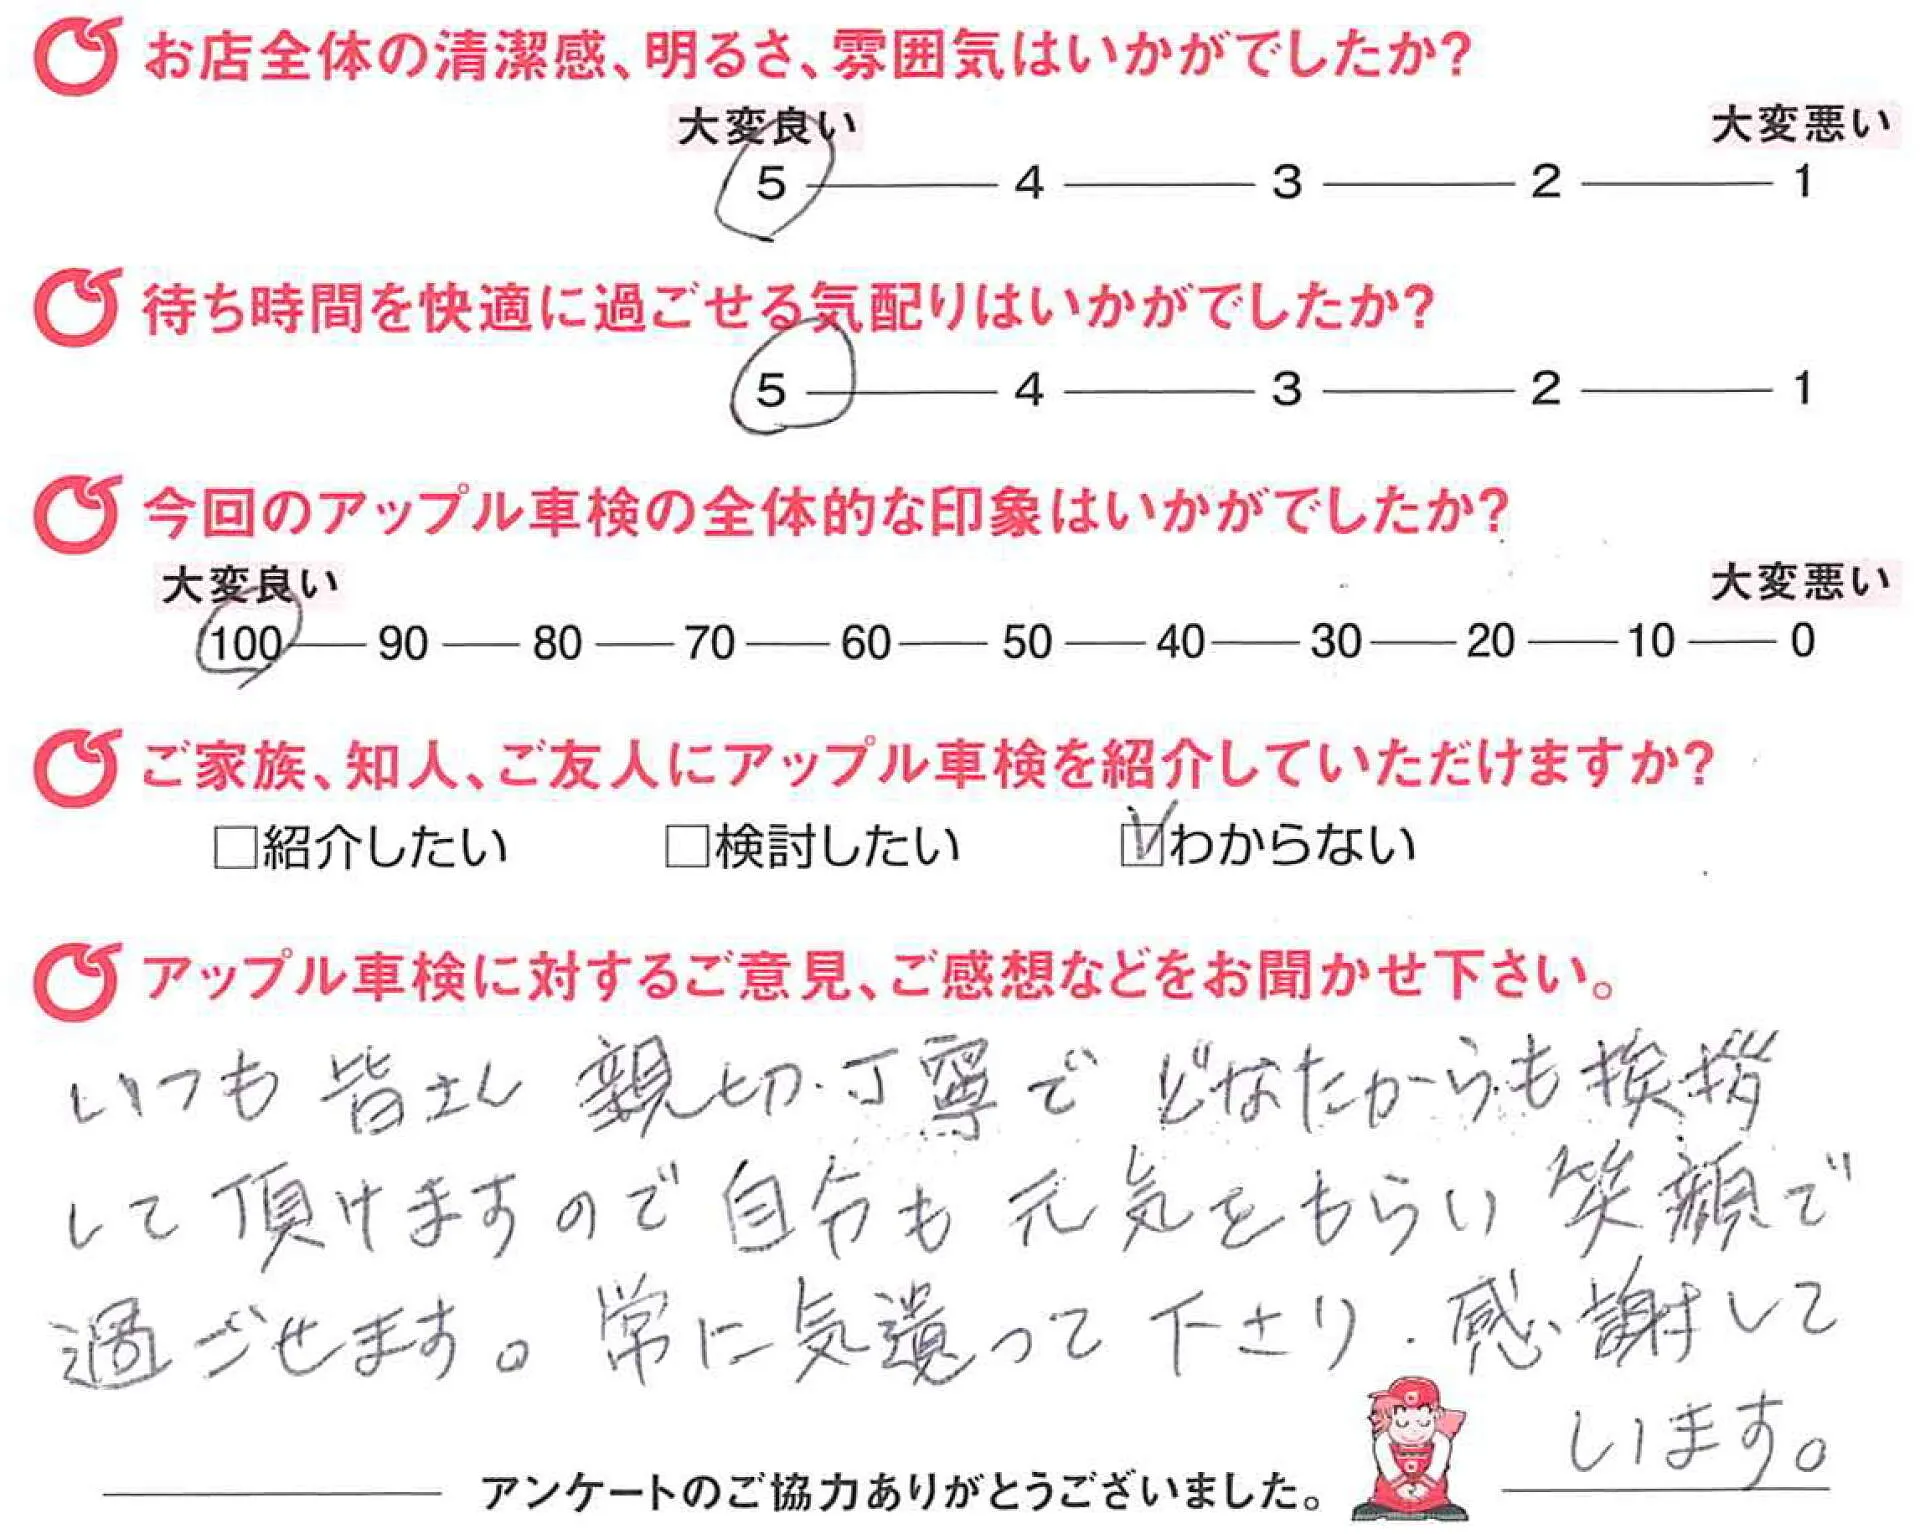 お店全体の清潔感、明るさ、雰囲気はいかがでしたか?
大変良い 大変悪い
5 4 3 2 1
待ち時間を快適に過ごせる気配りはいかがでしたか?
5 4 3 2 1
今回のアップル車検の全体的な印象はいかがでしたか?
大変良い 大変悪い
100 90 80 70 60 50 40 30 20 10 0
ご家族、知人、ご友人にアップル車検を紹介していただけますか?
□紹介したい □検討したい ☑わからない
アップル車検に対するご意見、ご感想などをお聞かせ下さい。
いつも皆さん親切・丁寧でどなたからも挨拶
して頂けますので自分も元気をもらい笑顔で
過ごせます。常に気遣って下さり、感謝して
います。
アンケートのご協力ありがとうございました。